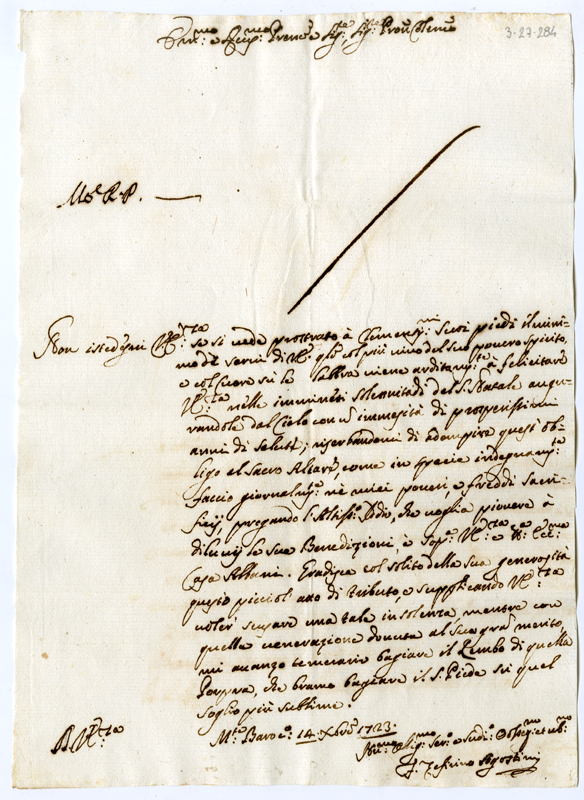 3-27-284
Em.mo e Rev.mo Prencipe Sig.re, Sig.re Pron Clem.mo
Mo.e R.P.
Non isdegni V.ra se si vede prostrato à Clementi.mi Suoi piedi il mini-
mo de servi di V. col più vivo del suo povero spirito,
e col cuore su le labbra viene arditam.te à felicitare
V. nelle imminenti solennitadi del S. Natale augu-
randole dal Cielo con immensità di prosperissimi
anni di salute; riserbandomi di adempire questi ob-
ligo al Sacro Altare, come in specie indegnam.te
faccio giornalm.te né miei poveri, e freddi sacri-
ficij, pregando l'Altiss.o Iddio, che voglia piovere à
diluvij le sue Benedizioni, e sop.a V. e Ecc.ma
Casa Albani. Gradisca col solito della sua generosità
questo picciol atto di tributo, e supplicando V.
voler scusare una tale insolenza, mentre con
quella venerazione dovuta al suo gran merito,
mi avanzo temerario bagiare il Lembo di quella
Porpora, che bramo bagiare il S. Piede su quel
soglio più sublime.
M.te Baroc.o 14 Xbre 1723.
Um.mo Oblig.mo Ser.e e Sud.o
F. Zefirino Agostini